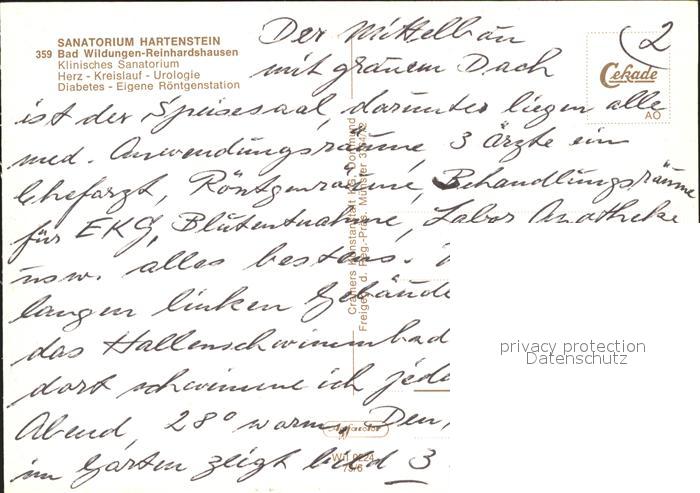 SANATORIUM HARTENSTEIN
359 Bad Wildungen-Reinhardshausen
Klinisches Sanatorium
Herz - Kreislauf - Urologie
Diabetes - Eigene Röntgenstation
2
Cekade
AO
Der Mittelbau
mit grünem Dach
ist der Speisesaal, darunter liegen alle
med. Anwendungsräume, 3 Ärzte ein
Chefarzt, Röntgenräume, Behandlungsräume
für EKG, Blutentnahme, Labor Apotheke
usw. alles bestens.
langen linken Gebäude
das Hallenschwimmbad
dort schwimme ich jede
Abend, 28° warm, Den
im Garten zeigt bild 3
Cramers Kunstanstalt KG, Dortmund
Freigeg. d. Reg.-Präs. Münster
privacy protection
Datenschutz